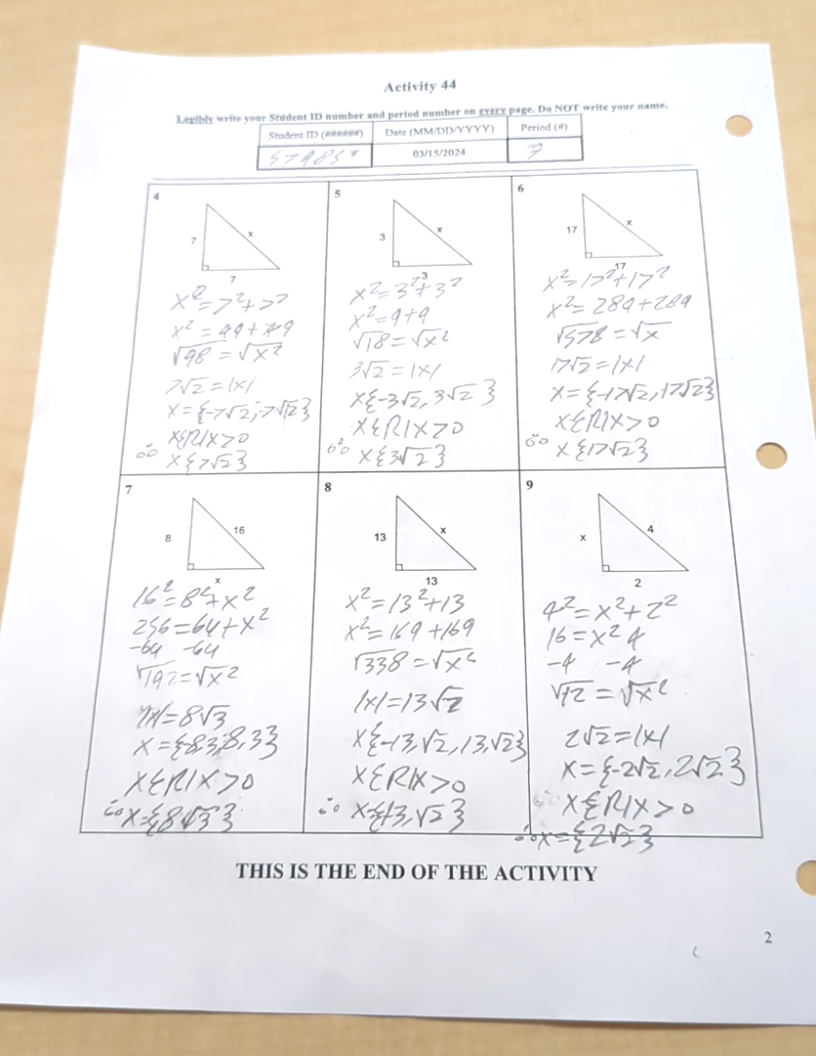 Activity 44
Legibly write your Student ID number and period number on every page. Do NOT write your name.
Student ID (######) Date (MM/DD/YYYY) Period (#)
03/15/2024
4
7
x
7
x²=7²+7²
x² = 49+49
√98 = √x²
7√2 = |x|
x = {-7√2, 7√2}
x{R|x>0
x{7√2}
5
3
x
3
x²=3²+3²
x²=9+9
√18=√x²
3√2 = |x|
x{-3√2, 3√2}
x{R|x>0
x{3√2}
6
17
x
17
x²=17²+17²
x²= 289+289
√578=√x
17√2=|x|
x={-17√2,17√2}
x{R|x>0
x{17√2}
7
8
16
x
16²=8²+x²
256=64+x²
-64 -64
√192=√x²
|x|=8√3
x={-8,3,8,3}
x{R|x>0
∴x={8√3}
8
13
x
13
x²=13²+13
x²=169+169
√338=√x²
|x|=13√2
x{-13,√2,13,√2}
x{R|x>0
∴ x={13,√2}
9
x
4
2
4²=x²+2²
16=x²4
-4 -4
√12=√x²
2√2=|x|
x={-2√2,2√2}
x{R|x>0
∴x={2√2}
THIS IS THE END OF THE ACTIVITY
2